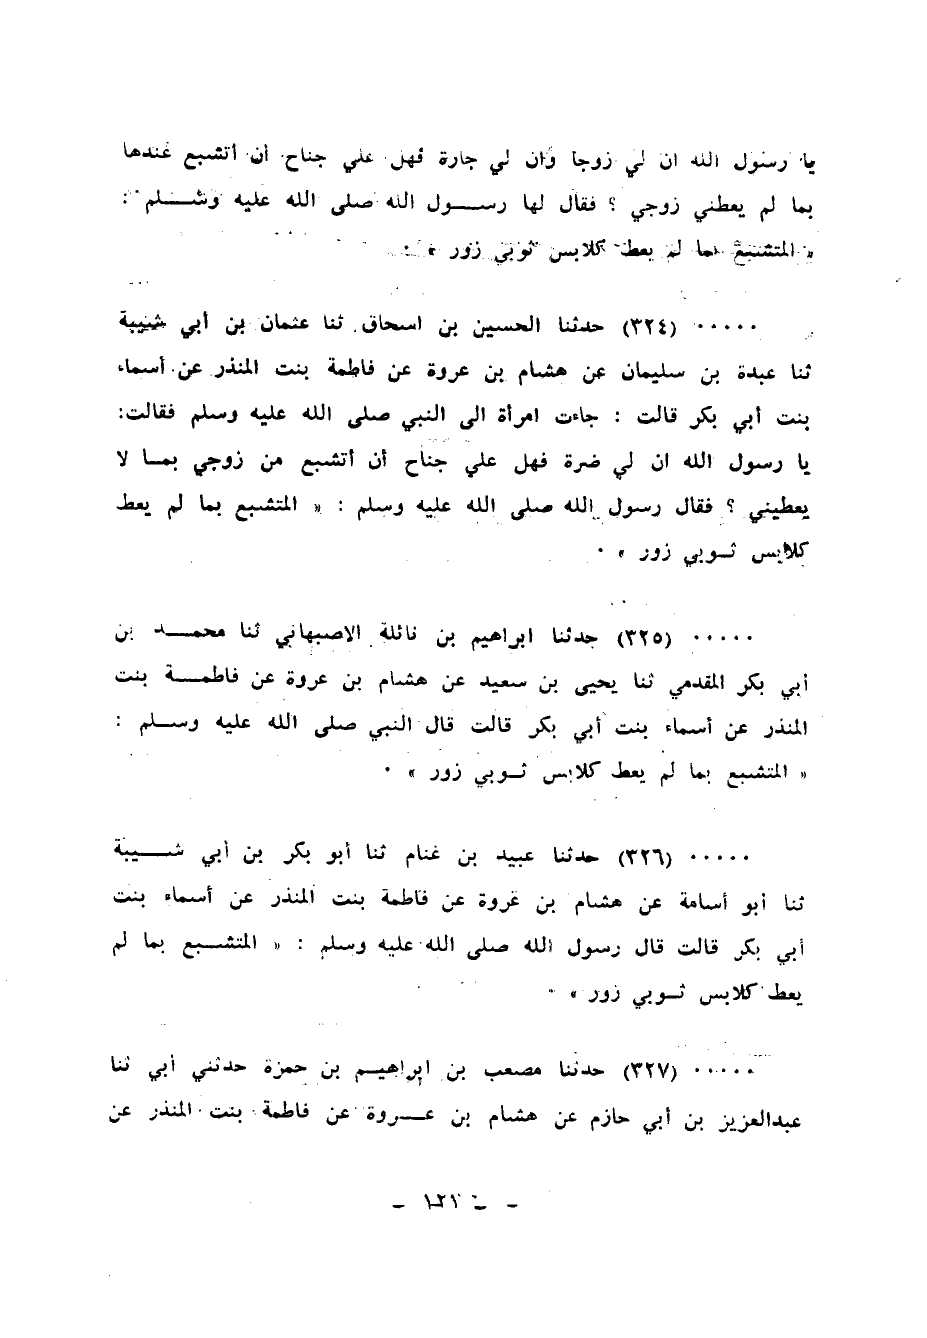 يا رسول الله ان لي زوجا وان لي جارة فهل علي جناح أن أتشبع عندها
بما لم يعطني زوجي ؟ فقال لها رســـول الله صلى الله عليه وســـلم :
« المتشبع بما لم يعط كلابس ثوبي زور » .
٠٠٠٠٠ (٣٢٤) حدثنا الحسين بن اسحاق ثنا عثمان بن أبي شيبة
ثنا عبدة بن سليمان عن هشام بن عروة عن فاطمة بنت المنذر عن أسماء
بنت أبي بكر قالت : جاءت امرأة الى النبي صلى الله عليه وسلم فقالت:
يا رسول الله ان لي ضرة فهل علي جناح أن أتشبع من زوجي بمـا لا
يعطيني ؟ فقال رسول الله صلى الله عليه وسلم : « المتشبع بما لم يعط
كلابس ثـوبي زور » ٠
٠٠٠٠٠ (٣٢٥) حدثنا ابراهيم بن نائلة الاصبهاني ثنا محمـــد بن
أبي بكر المقدمي ثنا يحيى بن سعيد عن هشام بن عروة عن فاطمـــة بنت
المنذر عن أسماء بنت أبي بكر قالت قال النبي صلى الله عليه وســلم :
« المتشبع بما لم يعط كلابس ثـوبي زور » ٠
٠٠٠٠٠ (٣٢٦) حدثنا عبيد بن غنام ثنا أبو بكر بن أبي شـــيبة
ثنا أبو أسامة عن هشام بن عروة عن فاطمة بنت المنذر عن أسماء بنت
أبي بكر قالت قال رسول الله صلى الله عليه وسلم : « المتشــبع بما لم
يعط كلابس ثـوبي زور » ٠
٠٠٠٠٠ (٣٢٧) حدثنا مصعب بن ابراهيـم بن حمزة حدثني أبي ثنا
عبدالعزيز بن أبي حازم عن هشام بن عـــروة عن فاطمة بنت المنذر عن